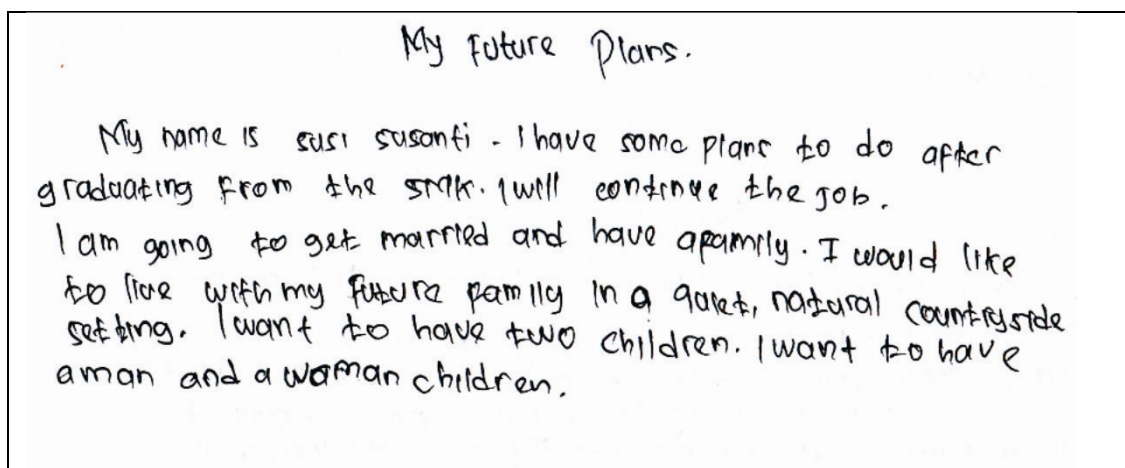 My Future Plans.
My name is susi susanti. I have some plans to do after
graduating from the smk. I will continue the job.
I am going to get married and have a family. I would like
to live with my future family in a quiet, natural countryside
setting. I want to have two children. I want to have
a man and a woman children.